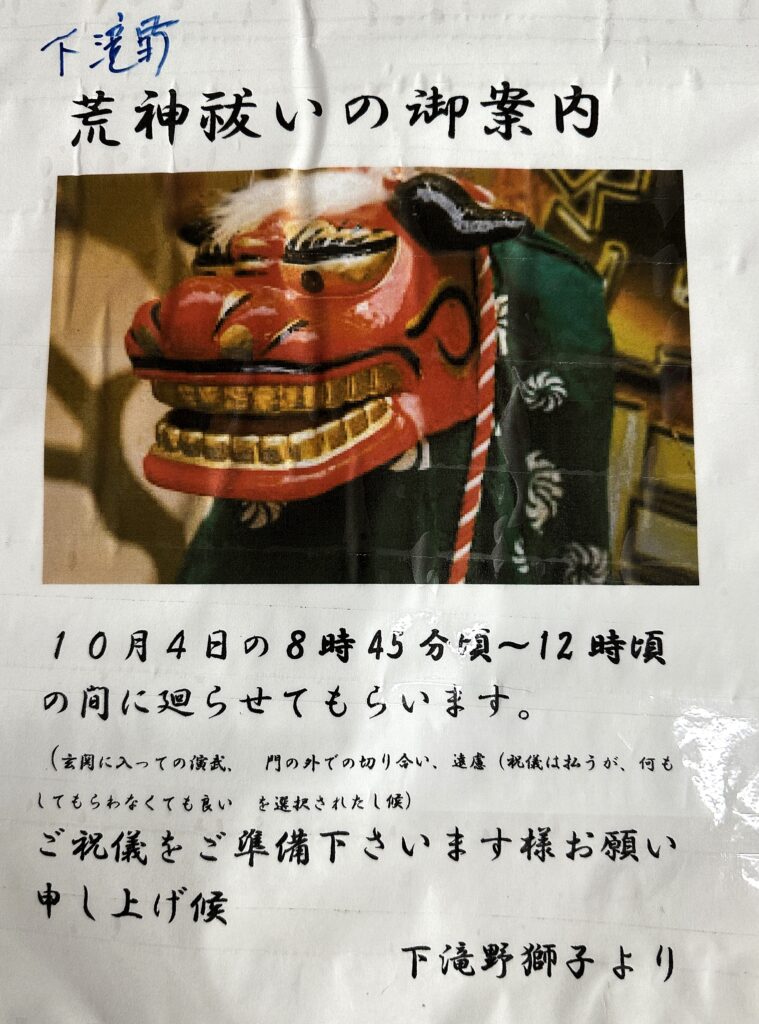 下滝野
荒神祓いの御案内
１０月４日の８時45分頃～12時頃
の間に廻らせてもらいます。
（玄関に入っての演武、　門の外での切り合い、遠慮（祝儀は払うが、何も
してもらわなくても良い　を選択されたし候）
ご祝儀をご準備下さいます様お願い
申し上げ候
下滝野獅子より